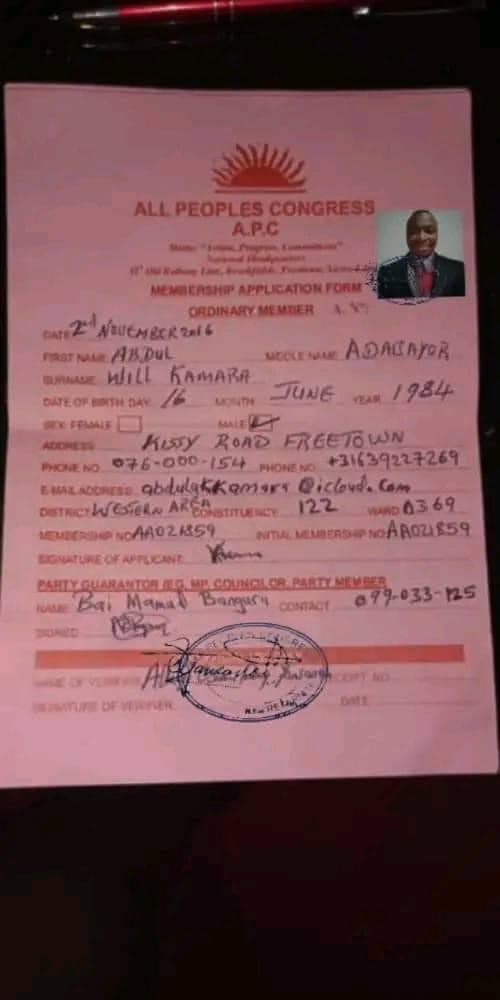 ALL PEOPLES CONGRESS
A.P.C
National Headquarters
MEMBERSHIP APPLICATION FORM
ORDINARY MEMBER
DATE 2nd NOVEMBER 2016
FIRST NAME ABDUL MIDDLE NAME ADABAYOR
SURNAME WILL KAMARA
DATE OF BIRTH DAY 16 MONTH JUNE YEAR 1984
SEX: FEMALE MALE
ADDRESS KISSY ROAD FREETOWN
PHONE NO. 076-000-154 PHONE NO. +31639227269
E-MAIL ADDRESS: @icloud.com
DISTRICT WESTERN AREA CONSTITUENCY 122 WARD 0369
MEMBERSHIP NO AA021859 INITIAL MEMBERSHIP NO AA021859
SIGNATURE OF APPLICANT
PARTY GUARANTOR (EG. MP, COUNCILOR, PARTY MEMBER
NAME: Bai Mamud Bangura CONTACT 099-033-125
SIGNED
NAME OF VERIFIER RECEIPT NO
SIGNATURE OF VERIFIER DATE